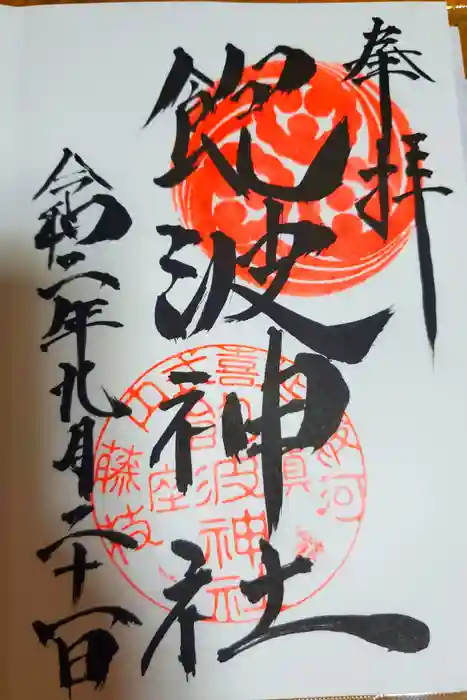 奉拝
飽波神社
令和二年九月二十一日
駿河
藤枝
飽波神社